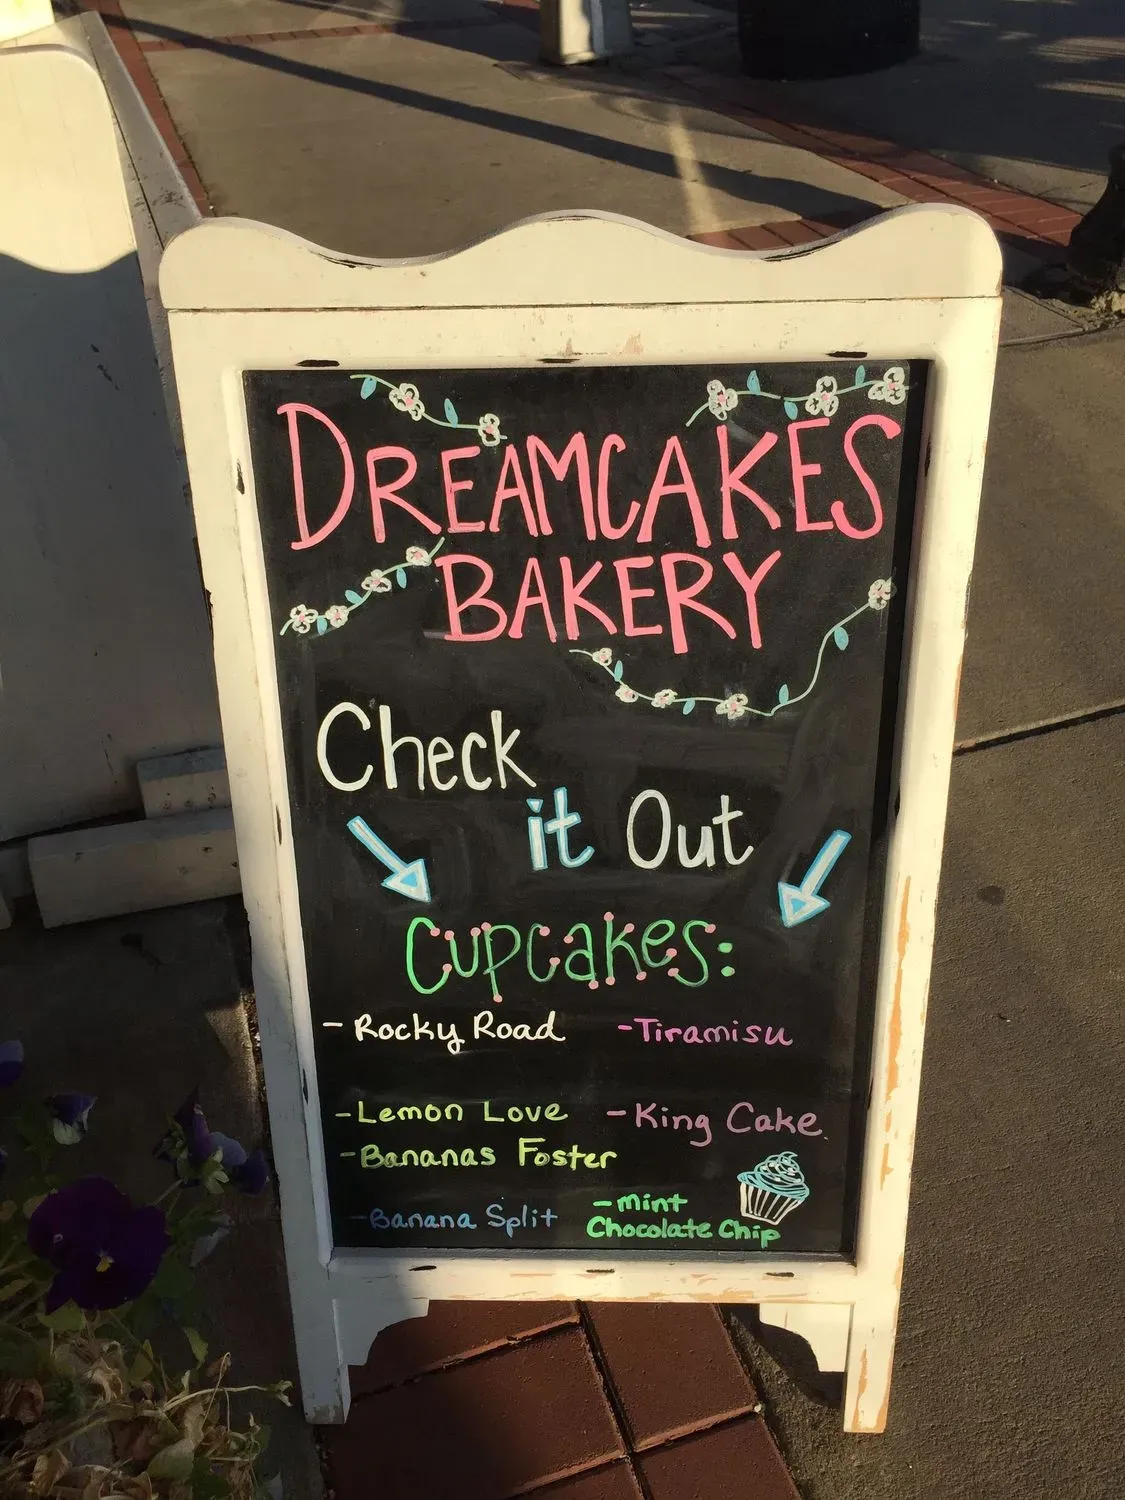 DREAMCAKES
BAKERY
Check
it Out
Cupcakes:
- Rocky Road
- Tiramisu
- Lemon Love
- King Cake
- Bananas Foster
- Banana Split
- Mint
Chocolate Chip